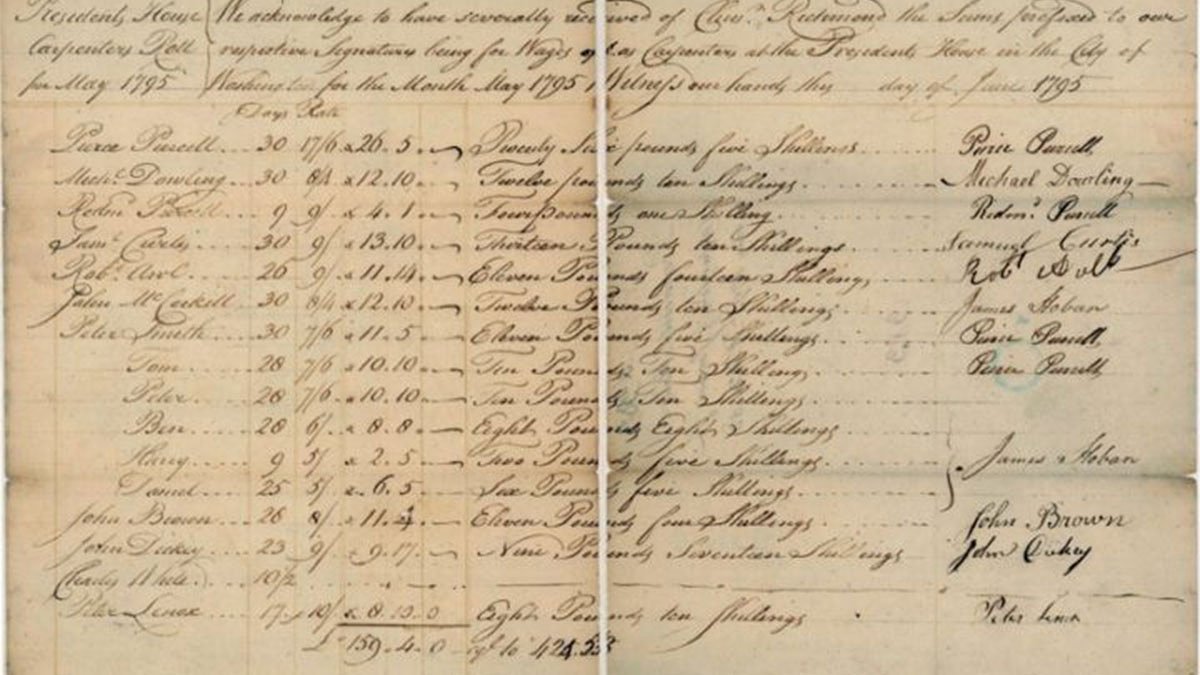 Presidents House We acknowledge to have severally received of Clem.t Richmond the Sums prefixed to our
Carpenters Roll respective Signatures being for Wages as Carpenters at the Presidents House in the City of
for May 1795 Washington for the Month May 1795 Witness our hands this day of June 1795
Days Rate
Pierce Purcell 30 17/6 26.5 Twenty Six pounds five Shillings Peirce Purcell
Mich.l Dowling 30 8/4 12.10 Twelve pounds ten Shillings Michael Dowling
Redm.d Purcell 9 9/ 4.1 Four pounds one Shilling Redm.d Purcell
Sam.l Curtis 30 9/ 13.10 Thirteen Pounds ten Shillings Samuel Curtis
Rob.t Aul 26 9/ 11.14 Eleven Pounds fourteen Shillings Rob.t Aull
John McCorkill 30 8/4 12.10 Twelve Pounds ten Shillings James Hoban
Peter Smith 30 7/6 11.5 Eleven Pounds five Shillings Peirce Purcell
Tom 28 7/6 10.10 Ten Pounds Ten Shillings Peirce Purcell
Peter 28 7/6 10.10 Ten Pounds Ten Shillings
Ben 28 6/ 8.8 Eight Pounds Eight Shillings
Harry 9 5/ 2.5 Two Pounds five Shillings James Hoban
Daniel 25 5/ 6.5 Six Pounds five Shillings
John Brown 28 8/ 11.4 Eleven Pounds four Shillings John Brown
John Dickey 23 9/ 9.17 Nine Pounds Seventeen Shillings John Dickey
Charles White 10/2
Peter Lenox 17 10/ 8.10.0 Eight Pounds ten Shillings Peter Lenox
£ 159.4.0 to